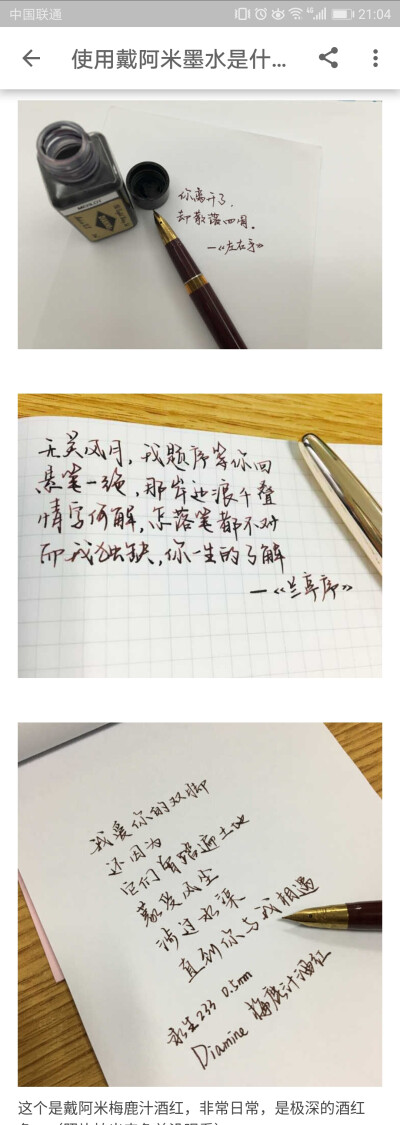 中国联通
21:04
使用戴阿米墨水是什...
你离开了,
却散落四周。
—《左右手》
无关风月,我题序等你回
悬笔一绝,那岸边浪千叠
情字何解,怎落笔都不对
而我独缺,你一生的了解
—《兰亭序》
我爱你的双脚
还因为
它们曾踏遍土地
蒙受风尘
涉过水渠
直到你与我相遇
永生233 0.5mm
Diamine 梅鹿汁酒红
这个是戴阿米梅鹿汁酒红，非常日常，是极深的酒红